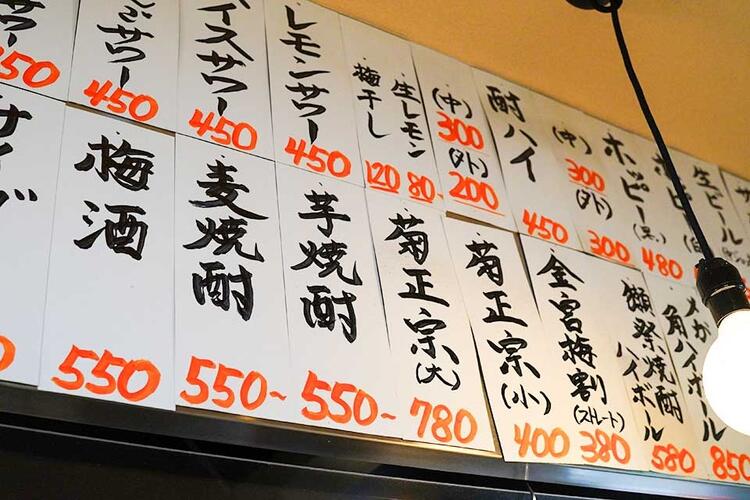 生ビール
ホッピー(黒)
480
(中)
300
(外)
300
酎ハイ
450
(中)
300
(外)
200
生レモン
80-
梅干し
120
レモンサワー
450
イスサワー
450
サワー
450
サワー
50
メガ
角ハイボール
850
獺祭焼酎
ハイボール
580
金宮梅割
(ストレート)
380
菊正宗(小)
400
菊正宗(大)
780
芋焼酎
550~
麦焼酎
550~
梅酒
550